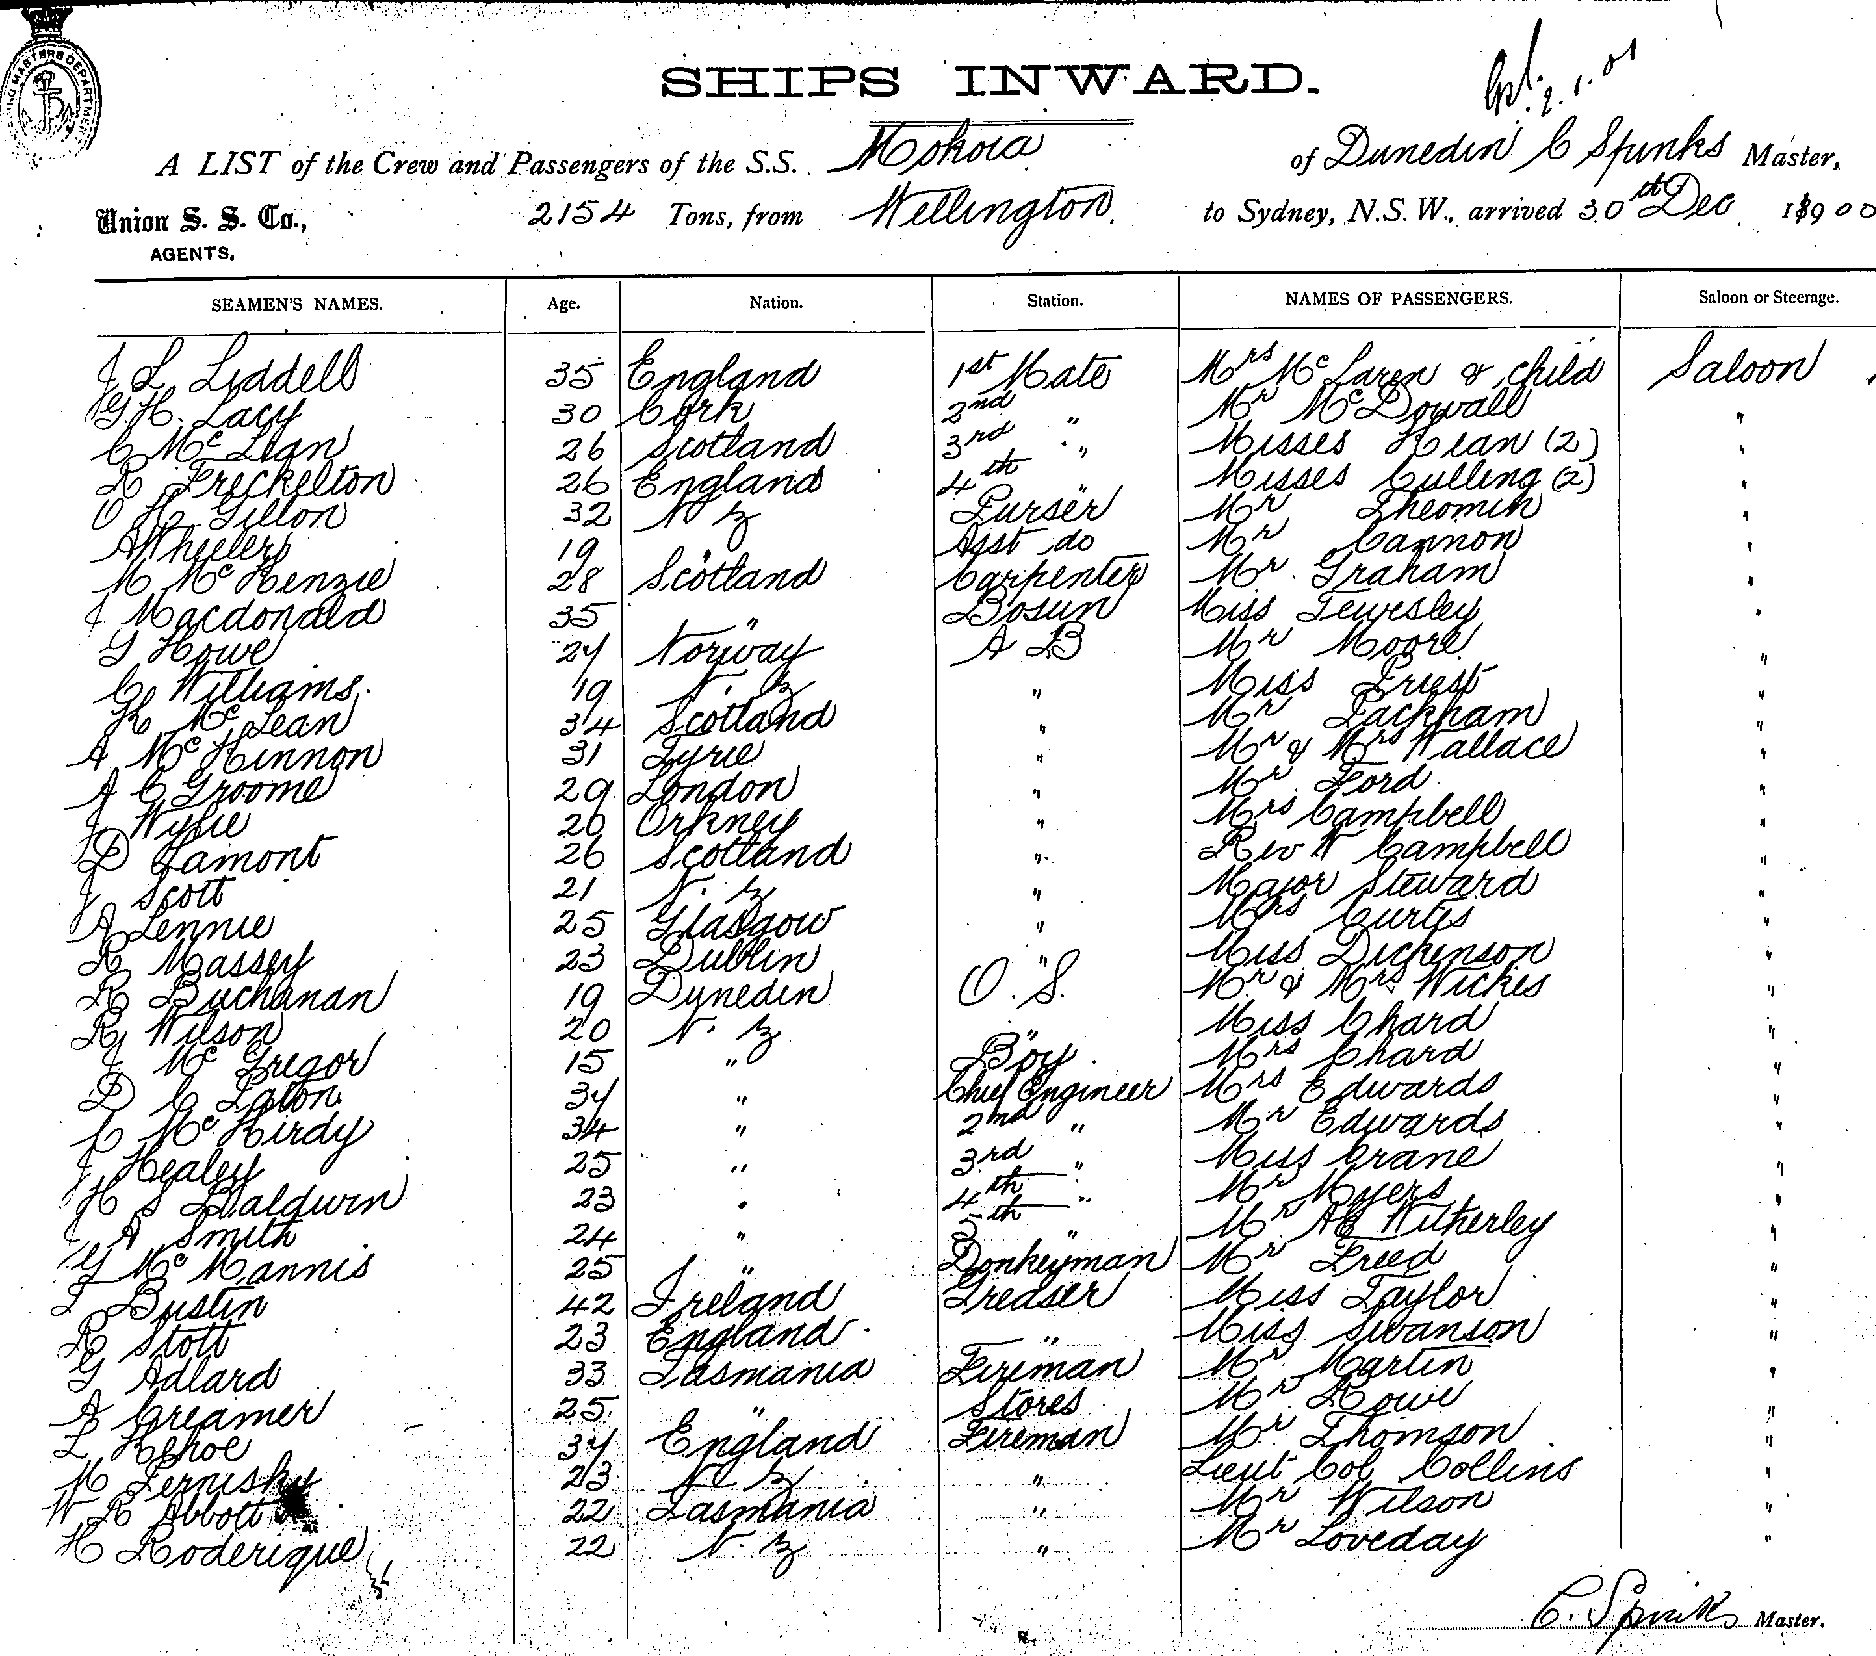 SHIPS INWARD.
2.1.01
A LIST of the Crew and Passengers of the S.S. Mokoia of Dunedin C Spinks Master,
Union S. S. Co., 2154 Tons, from Wellington. to Sydney, N.S.W., arrived 30th Dec 1900
AGENTS.
SEAMEN'S NAMES. Age. Nation. Station. NAMES OF PASSENGERS. Saloon or Steerage.
J L Liddell 35 England 1st Mate Mrs McLaren & child Saloon
G H. Lacy 30 Cork 2nd " Mr McDowall "
C McLean 26 Scotland 3rd " Misses Kean (2) "
R Freckelton 26 England 4th " Misses Culling (2) "
O H Gillon 32 N Z Purser Mr Theomin "
A Wheeler 19 " Asst do Mr Cannon "
M McKenzie 28 Scotland Carpenter Mr. Graham "
J Macdonald 35 " Bosun Miss Tewesley "
G Howe 24 Norway A B Mr Moore "
C Williams. 19 N. Z " Miss Priest "
H McLean 34 Scotland " Mr Packham "
A McKinnon 31 Tyrie " Mr & Mrs Wallace "
A C Groome 29 London " Mr Ford "
J Wylie 20 Orkney " Mrs Campbell "
D Lamont 26 Scotland " Rev W Campbell "
J Scott 21 N. Z " Major Steward "
A Lennie 25 Glasgow " Mrs Curtis "
R Massey 23 Dublin " Miss Dickenson "
R Buchanan 19 Dunedin O. S. Mr & Mrs Wickes "
R Wilson 20 N. Z " Miss Chard "
J McGregor 15 " Boy. Mrs Chard "
D C Eaton 34 " Chief Engineer Mrs Edwards "
C McKirdy 34 " 2nd " Mr Edwards "
J Healey 25 " 3rd " Miss Crane "
H S Baldwin 23 " 4th " Mr Myers "
J A Smith 24 " 5th " Mr AE Witherley "
G McMannis 25 " Donkeyman Mr Freed "
T Bustin 42 Ireland Greaser Miss Taylor "
R Stott 23 England " Miss Swanson "
G Adlard 33 Tasmania Fireman Mr Martin "
A Creamer 25 " Stores Mr Rowe "
L Kehoe 34 England Fireman Mr Thomson "
M 23 N Z " Lieut Col Collins "
W R Abbott 22 Tasmania " Mr Wilson "
H Roderique 22 N Z " Mr Loveday "
C. Spinks Master.